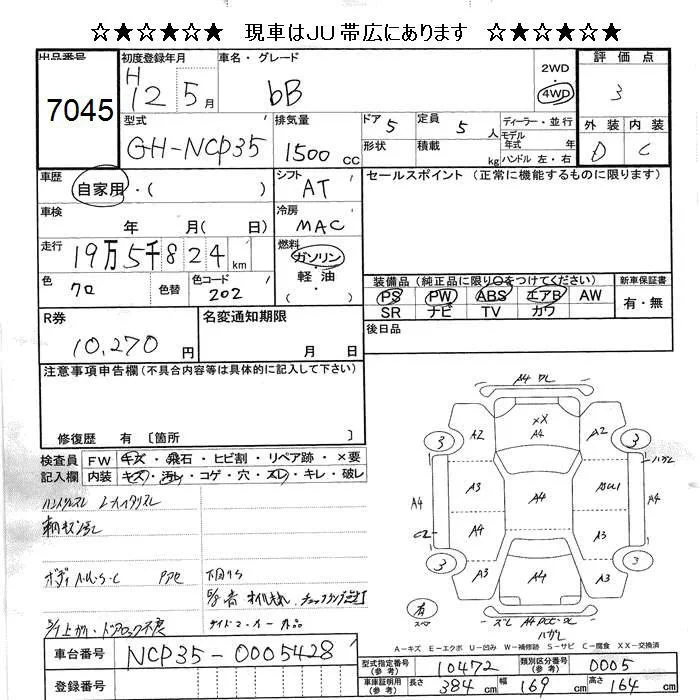 ☆★☆★☆★ 現車はJU帯広にあります ☆★☆★☆★
出品番号 初度登録年月 車名・グレード 2WD 評価点
7045 H 12 5月 bB 4WD 3
型式 排気量 ドア 5 定員 5人 ディーラー・並行 外装 内装
GH-NCP35 1500cc 形状 積載 kg モデル年式 年 ハンドル 左・右 D C
車歴 自家用・( ) シフト AT セールスポイント (正常に機能するものに限ります)
車検 年 月( 日) 冷房 MAC
走行 19万5千824km 燃料 ガソリン・軽油・( )
色 クロ 色替 色コード 202
装備品 (純正品に限り○をつけてください) 新車保証書
PS PW ABS エアB AW 有・無
SR ナビ TV カワ
R券 10,270円 名変通知期限 月 日 後日品
注意事項申告欄 (不具合内容等は具体的に記入して下さい)
修復歴 有 〔箇所 〕
検査員記入欄 FW キズ・飛石・ヒビ割・リペア跡・×要
内装 キズ・汚れ・コゲ・穴・スレ・キレ・破レ
ハンドルスレ
ボディ A・U・S・C
下回りサビ
A4
XX
A4
A2
A2
3
3
A3
A4
A4
A4
C2
A4
A3
A3
A3
A4
3
3
有
スペア
A-キズ E-エクボ U-凹み W-補修跡 S-サビ C-腐食 XX-交換済
車台番号 NCP35-0005428
登録番号
型式指定番号(参考) 10472 類別区分番号(参考) 0005
車庫証明用(参考) 長さ 384cm 幅 169cm 高さ 164cm